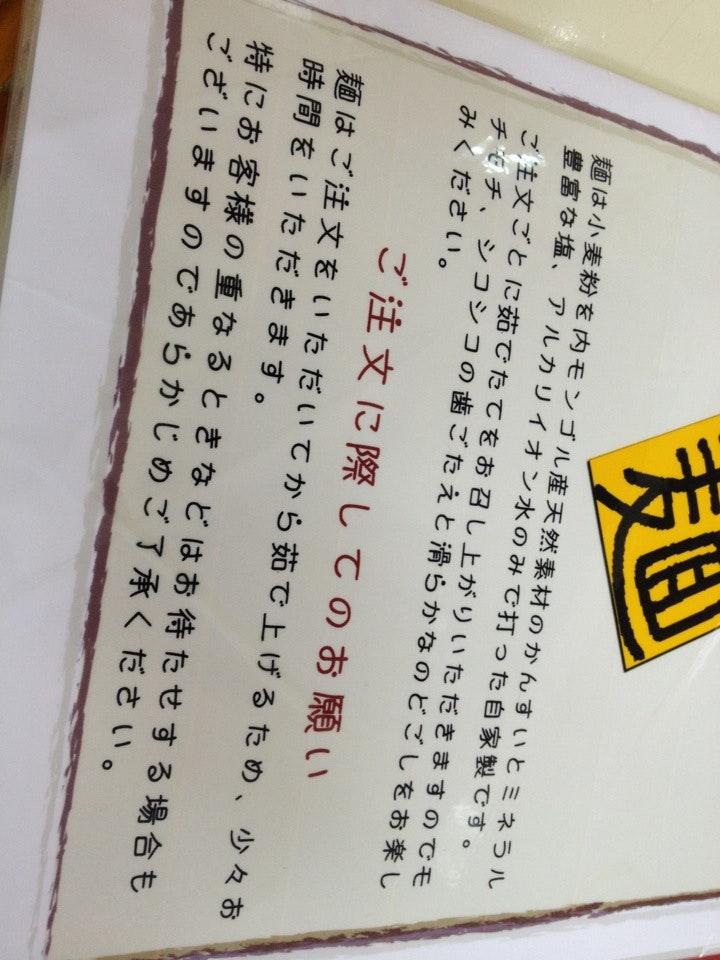 麺
麺は小麦粉を内モンゴル産天然素材のかんすいとミネラル
豊富な塩、アルカリイオン水のみで打った自家製です。
ご注文ごとに茹でたてをお召し上がりいただきますのでモ
チモチ、シコシコの歯ごたえと滑らかなのどごしをお楽し
みください。
ご注文に際してのお願い
麺はご注文をいただいてから茹で上げるため、少々お
時間をいただきます。
特にお客様の重なるときなどはお待たせする場合も
ございますのであらかじめご了承ください。